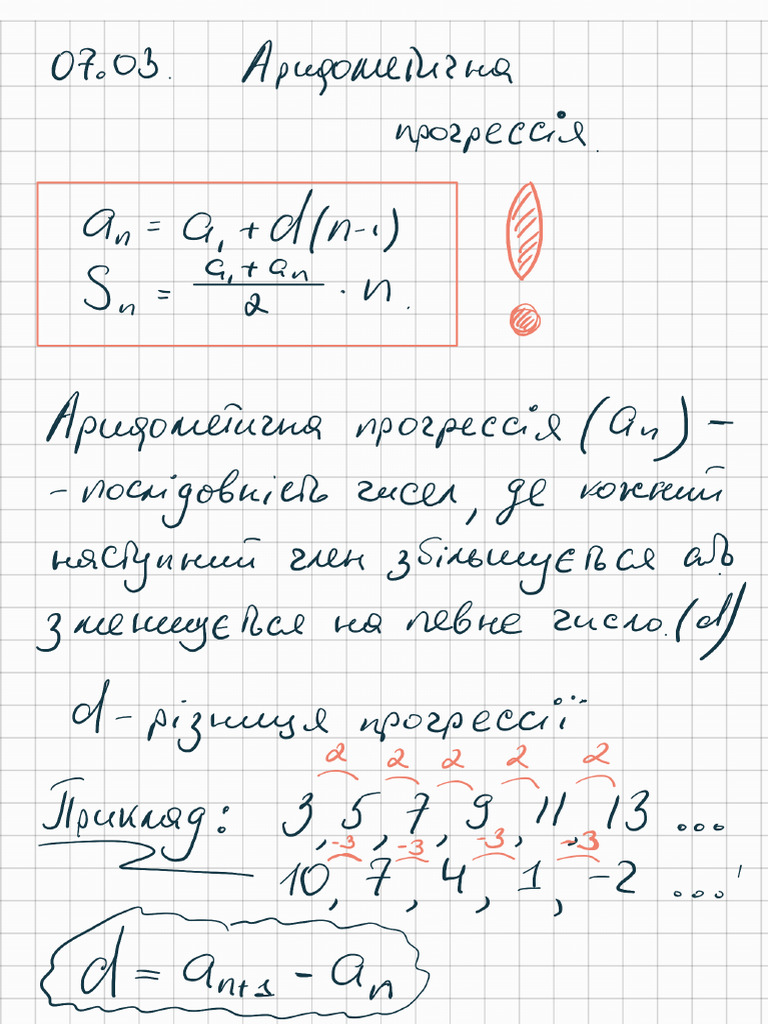 07.03. Арифметична
прогрессія.
aₙ = a₁ + d(n-1)
Sₙ = (a₁ + aₙ)/2 · n.
Арифметична прогрессія (aₙ) –
– послідовність чисел, де кожний
наступний член збільшується або
зменшується на певне число. (d)
d – різниця прогрессії
2 2 2 2 2
Приклад: 3, 5, 7, 9, 11, 13 ...
-3 -3 -3 -3
10, 7, 4, 1, -2 ...
d = aₙ₊₁ - aₙ